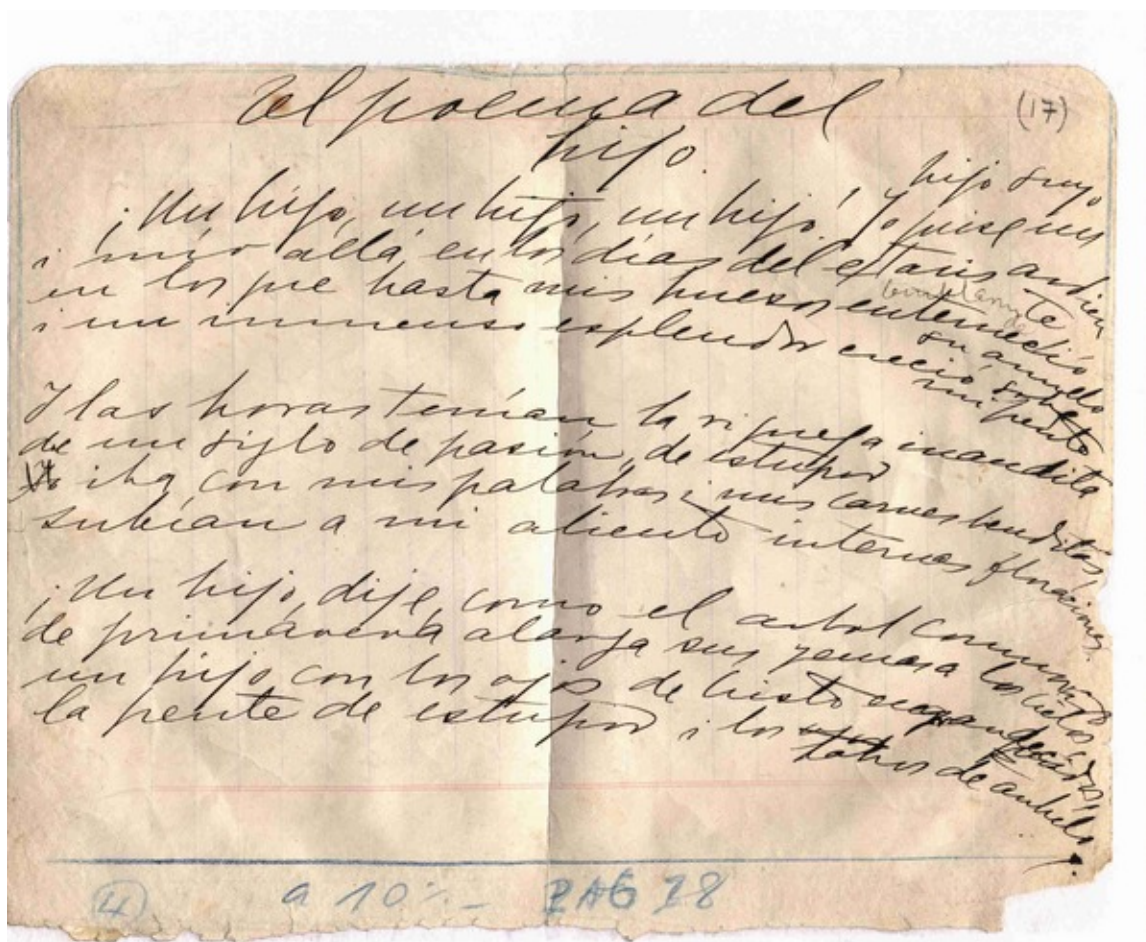 El poema del
hijo.
(17)
¡Un hijo, un hijo, un hijo! Yo quise un hijo suyo
i mío allá en los días del éxtasis ardiente
en los que hasta mis huesos enterneció su arrullo
i un inmenso esplendor creció sobre mi frente
I las horas tenían la riqueza inaudita
de un siglo de pasión, de estupor
con mis palabras i mis carnes benditas,
subían a mi aliento internas floraciones.
¡Un hijo, dije, como el arbol conmovido
de primavera alarga sus yemas a los cielos
un hijo con los ojos de Cristo engrandecidos,
la frente de estupor i los labios de anhelo.
(4) a 10%- PAG 28